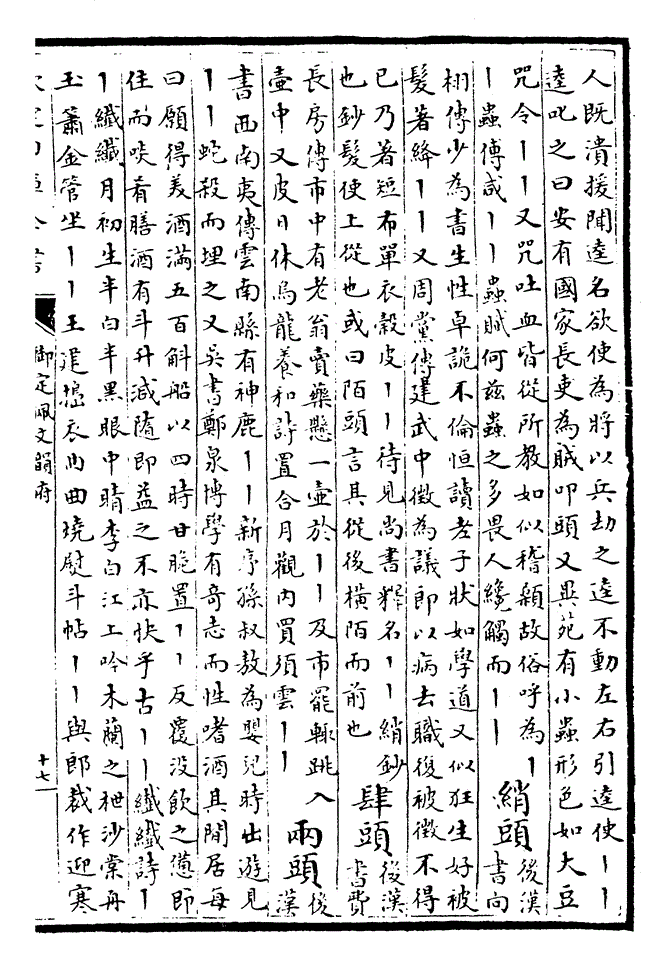 人既潰援聞逵名欲使為將以兵劫之逵不動左右引逵使丨丨
逵叱之曰安有國家長吏為賊叩頭又異苑有小蟲形色如大豆
咒令丨丨又咒吐血皆從所教如似稽顙故俗呼為丨
丨蟲傳咸丨丨蟲賦何兹蟲之多畏人纔觸而丨丨
綃頭後漢書向
栩傳少為書生性卓詭不倫恒讀老子狀如學道又似狂生好被
髮著絳丨丨又周黨傳建武中徵為議郎以病去職後被徵不得
已乃著短布單衣穀皮丨丨待見尚書釋名丨丨綃鈔
也鈔髮使上從也或曰陌頭言其從後横陌而前也
肆頭後漢書費
長房傳市中有老翁賣藥懸一壺於丨丨及市罷輒跳入
壺中又皮日休烏龍養和詩置合月觀内買須雲丨丨
兩頭後漢
書西南夷傳雲南縣有神鹿丨丨新序孫叔敖為嬰兒時出遊見
丨丨蛇殺而埋之又吳書鄭泉博學有奇志而性嗜酒其閒居每
曰願得美酒滿五百斛船以四時甘脆置丨丨反覆没飲之憊即
住而啖肴膳酒有斗升減隨即益之不亦快乎古丨丨纖纖詩丨
丨纖纖月初生半白半黒眼中睛李白江上吟木蘭之枻沙棠舟
玉簫金管坐丨丨王建擣衣曲曲燒熨斗帖丨丨與郎裁作迎寒
御定佩文韻府
十七